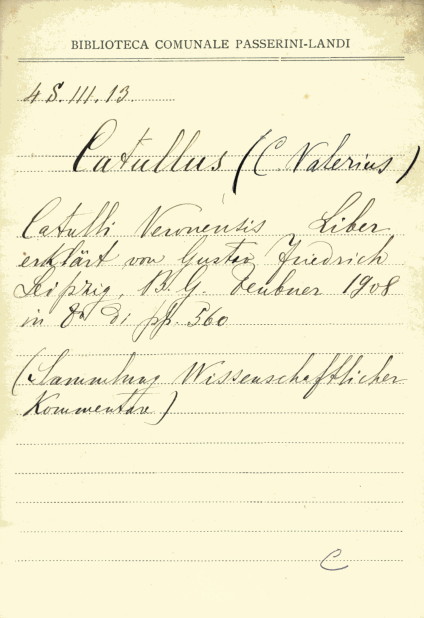 BIBLIOTECA COMUNALE PASSERINI-LANDI
4 S. III. 13.
Catullus (C. Valerius)
Catulli Veronensis Liber
erklärt von Gustav Friedrich
Leipzig, B. G. Teubner 1908
in 8° di pp. 560
(Sammlung Wissenschaftlicher
Kommentare)
C